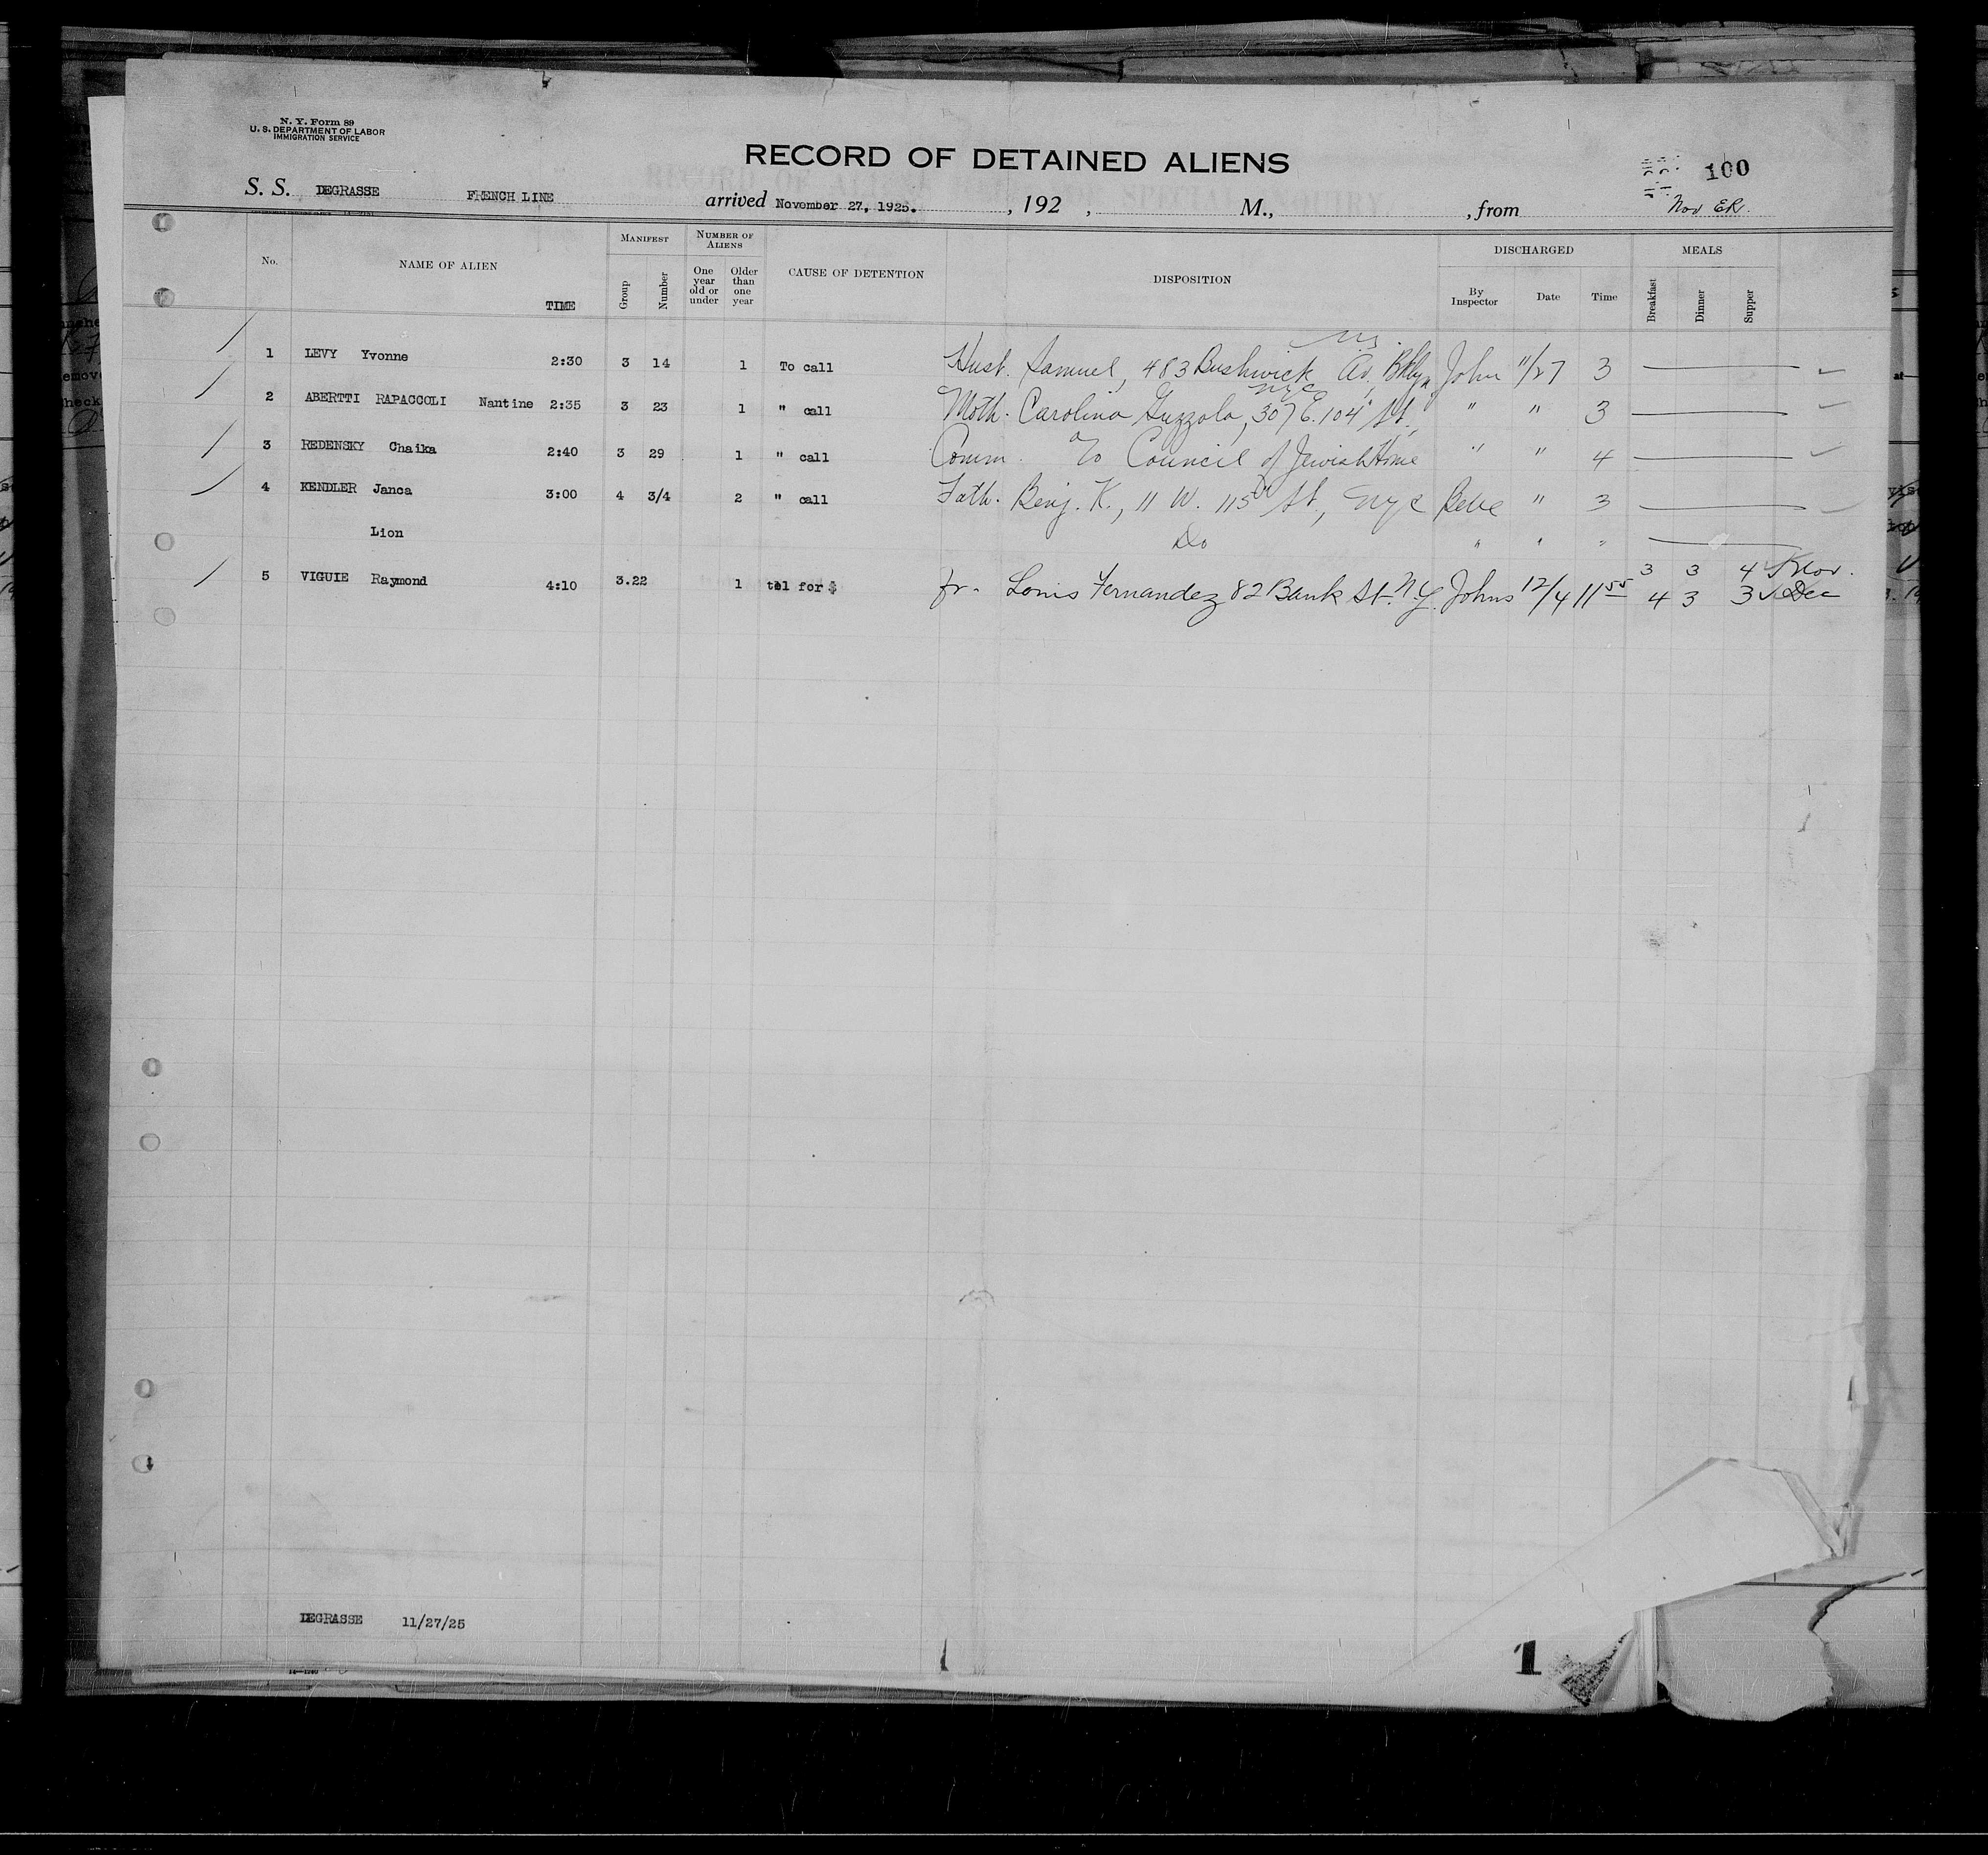 N. Y. Form 89
U. S. DEPARTMENT OF LABOR
IMMIGRATION SERVICE
RECORD OF DETAINED ALIENS
100
S. S. DEGRASSE FRENCH LINE arrived November 27, 1925. , 192 , M., , from Nov ER.
No. NAME OF ALIEN TIME MANIFEST Group Number NUMBER OF ALIENS One year old or under Older than one year CAUSE OF DETENTION DISPOSITION DISCHARGED By Inspector Date Time MEALS Breakfast Dinner Supper
1 LEVY Yvonne 2:30 3 14 1 To call Husb. Samuel, 483 Bushwick Av., Bklyn John 11/27 3
NYC
2 ABERTTI RAPACCOLI Nantine 2:35 3 23 1 " call Moth. Carolina Guzzola, 307 E. 104" St., " " 3
3 REDENSKY Chaika 2:40 3 29 1 " call Comm. To Council of Jewish Home " " 4
4 KENDLER Janca 3:00 4 3/4 2 " call Fath. Benj. K., 11 W. 115th St., NYC " 3
Lion Do " " "
5 VIGUIE Raymond 4:10 3.22 1 tel for $ fr. Louis Fernandez 82 Bank St. N.Y. Johns 12/4 11 55 3 3 4 Nov.
4 3 3 Dec
DEGRASSE 11/27/25
1